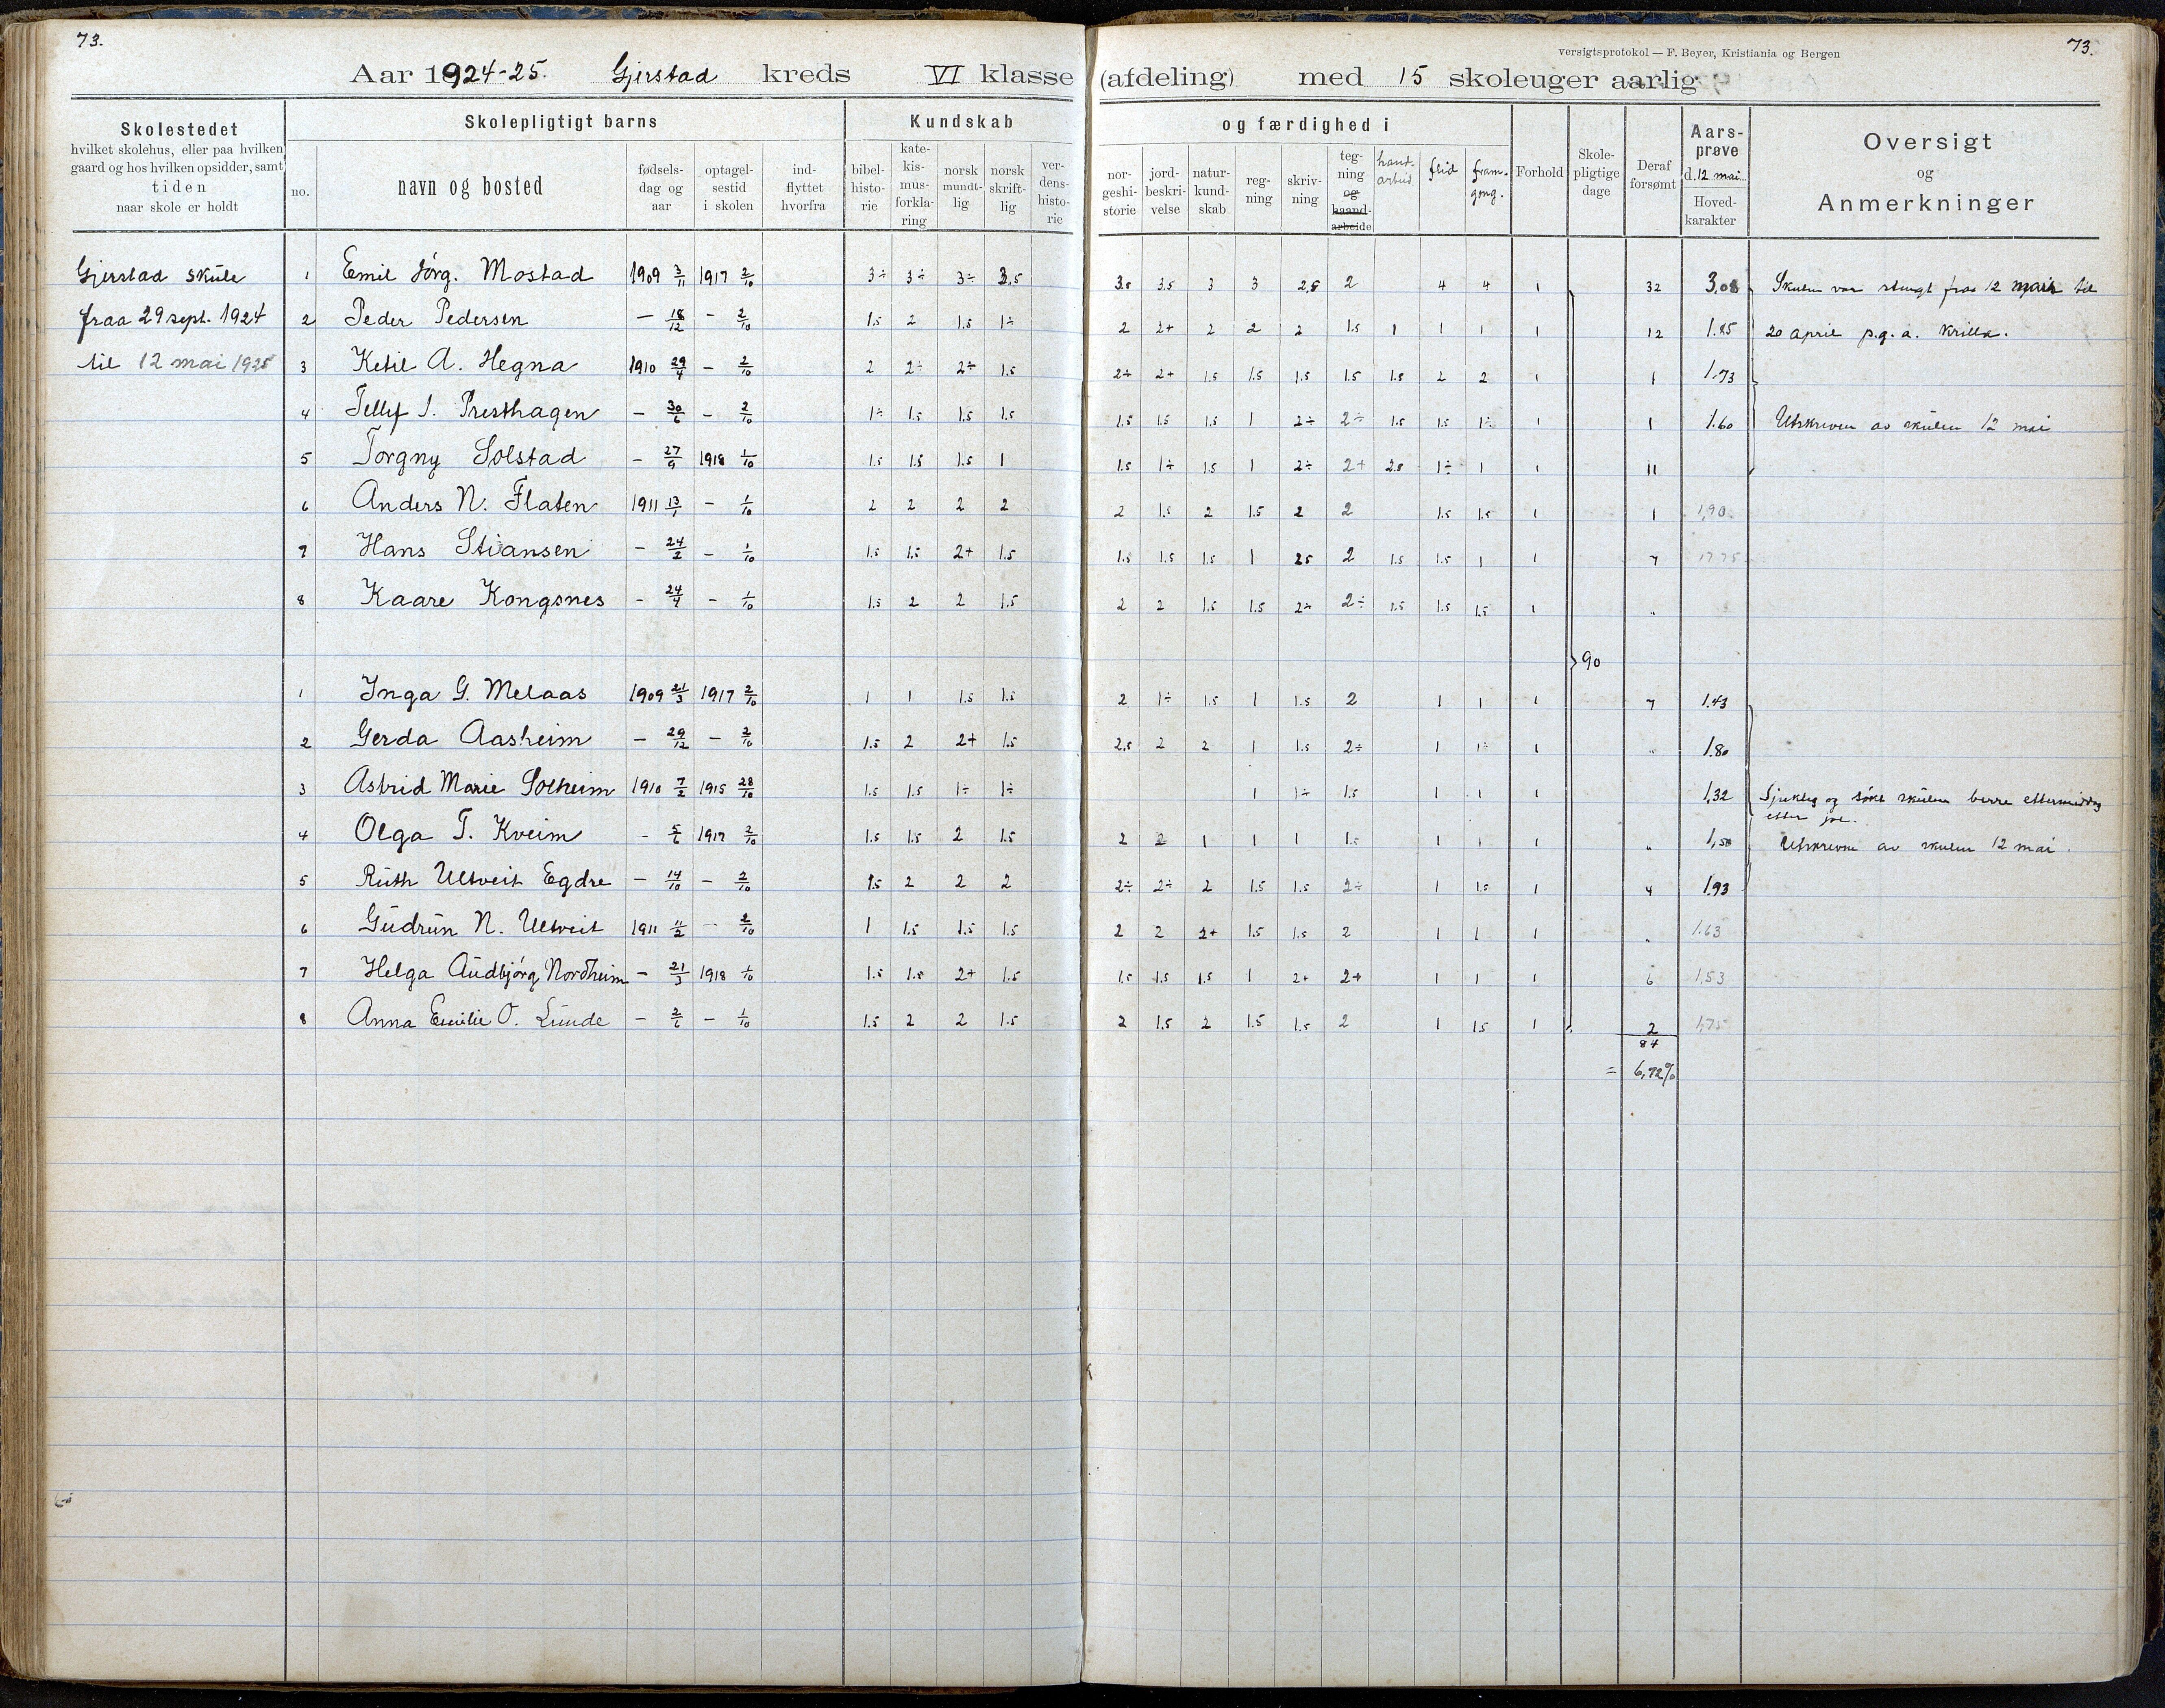 73.
versigtsprotokol — F. Beyer, Kristiania og Bergen
73.
Aar 1924-25. Gjerstad kreds VI klasse (afdeling) med 15 skoleuger aarlig
Skolestedet
hvilket skolehus, eller paa hvilken
gaard og hos hvilken opsidder, samt
tiden
naar skole er holdt
Skolepligtigt barns
no.
navn og bosted
fødsels-
dag og
aar
optagel-
sestid
i skolen
ind-
flyttet
hvorfra
Kundskab
bibel-
histo-
rie
kate-
kis-
mus-
forkla-
ring
norsk
mundt-
lig
norsk
skrift-
lig
ver-
dens-
histo-
rie
og færdighed i
nor-
geshi-
storie
jord-
beskri-
velse
natur-
kund-
skab
reg-
ning
skriv-
ning
teg-
ning
og
haand-
arbeide
hand-
arbeid
flid
fram-
gong.
Forhold
Skole-
pligtige
dage
Deraf
forsømt
Aars-
prøve
d. 12 mai
Hoved-
karakter
Oversigt
og
Anmerkninger
Gjerstad skule 1 Emil Jörg. Mostad 1909 3/11 1917 2/10 3÷ 3÷ 3÷ 3,5 3.5 3.5 3 3 2,5 2 4 4 1 32 3,08 Skulen var stengt fraa 12 mars til
fraa 29 sept. 1924 2 Peder Pedersen — 18/12 – 2/10 1.5 2 1.5 1÷ 2 2+ 2 2 2 1.5 1 1 1 1 12 1.85 20 april p.g.a. krilla.
til 12 mai 1925 3 Ketil A. Hegna 1910 29/4 – 2/10 2 2÷ 2÷ 1.5 2÷ 2+ 1.5 1.5 1.5 1.5 1.5 2 2 1 1 1.73
4 Tellef I. Presthagen – 30/6 – 2/10 1÷ 1.5 1.5 1.5 1.5 1.5 1.5 1 2÷ 2÷ 1.5 1.5 1÷ 1 1 1.60 Utskreven av skulen 12 mai
5 Torgny Solstad – 27/9 1918 1/10 1.5 1.5 1.5 1 1.5 1÷ 1.5 1 2÷ 2+ 2.5 1÷ 1 1 11
6 Anders N. Flaten 1911 13/1 – 1/10 2 2 2 2 2 1.5 2 1.5 2 2 1.5 1.5 1 1 1,90
7 Hans Stiansen – 24/2 – 1/10 1.5 1.5 2+ 1.5 1.5 1.5 1.5 1 25 2 1.5 1.5 1 1 7
8 Kaare Kongsnes – 24/4 – 1/10 1.5 2 2 1.5 2 2 1.5 1.5 2÷ 2÷ 1.5 1.5 1.5 1 „
90
1 Inga G. Melaas 1909 21/3 1917 2/10 1 1 1.5 1.5 2 1÷ 1.5 1 1.5 2 1 1 1 7 1.43
2 Gerda Aasheim – 29/12 – 2/10 1.5 2 2+ 1.5 2,5 2 2 1 1.5 2÷ 1 1÷ 1 „ 1.80
3 Astrid Marie Solheim 1910 7/2 1915 28/10 1.5 1.5 1÷ 1÷ 1 1÷ 1.5 1 1 1 1,32 Sjukleg og søkt skulen berre ettermiddag
etter jol.
4 Olga T. Kveim – 5/6 1917 2/10 1.5 1.5 2 1.5 2 2 1 1 1 1.5 1 1 1 „ 1,50 Utskrevne av skulen 12 mai.
5 Ruth Ultveit Egdre – 14/10 – 2/10 1.5 2 2 2 2÷ 2÷ 2 1.5 1.5 2÷ 1 1.5 1 4 1,93
6 Gudrun N. Ulltveit 1911 11/2 – 2/10 1 1.5 1.5 1.5 2 2 2+ 1.5 1.5 2 1 1 1 „ 1.63
7 Helga Audbjörg Nordheim – 21/3 1918 1/10 1.5 1.5 2+ 1.5 1.5 1.5 1.5 1 2+ 2+ 1 1 1 6 1,53
8 Anna Emilie O. Lunde – 2/6 – 1/10 1.5 2 2 1.5 2 1.5 2 1.5 1.5 2 1 1.5 1 2 1,75
84
= 6,72%